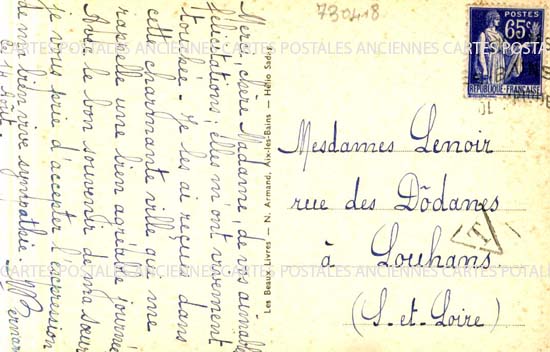 730418
POSTES
65c
RÉPUBLIQUE FRANÇAISE
Merci, chère Madame, de vos aimables
félicitations; elles m'ont vivement
touchée. Je les ai reçues dans
cette charmante ville qui me
rappelle une bien agréable journée
Avec le bon souvenir de ma sœur
je vous prie d'accepter l'expression
de ma bien vive sympathie.
Le 14 Août.
Les Beaux Livres — N. Armand, Aix-les-Bains — Hélio Sadag
Mesdames Lenoir
rue des Dôdanes
T
à Louhans
(S-et-Loire)
CARTES POSTALES ANCIENNES CARTES POSTALES ANCIENNES CARTES POSTALES